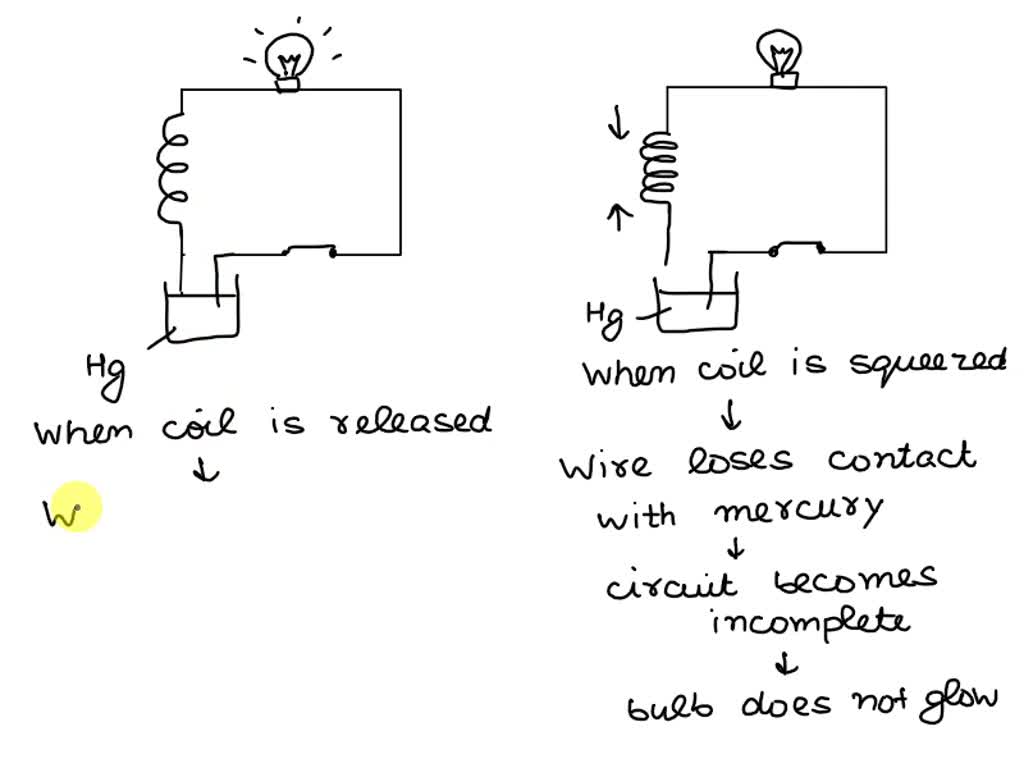 Hg
when coil is released
↓
W
Hg
when coil is squeezed
↓
wire loses contact
with mercury
↓
circuit becomes
incomplete
↓
bulb does not glow